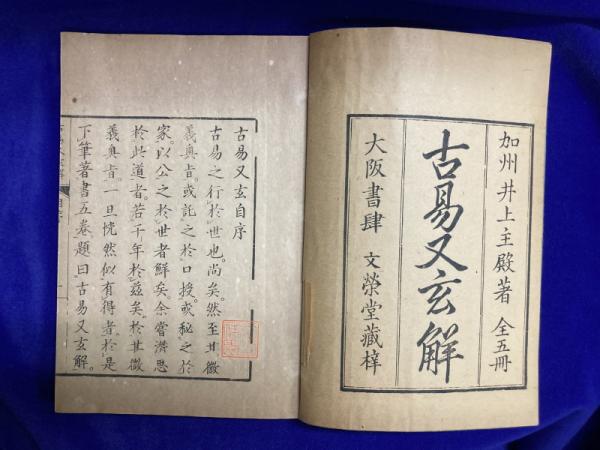 加州井上主殿著　全五冊
古易又玄解
大阪書肆　文榮堂藏梓
古易又玄自序
古易之行於世也。尚矣。然至其微
義奧旨。或託之於口授。或秘之於
家。以公之於世者鮮矣。余嘗潛思
於此道者。若干年於茲矣。於其微
義奧旨。一旦恍然似有得者。於是
下筆著書五卷。題曰。古易又玄解。